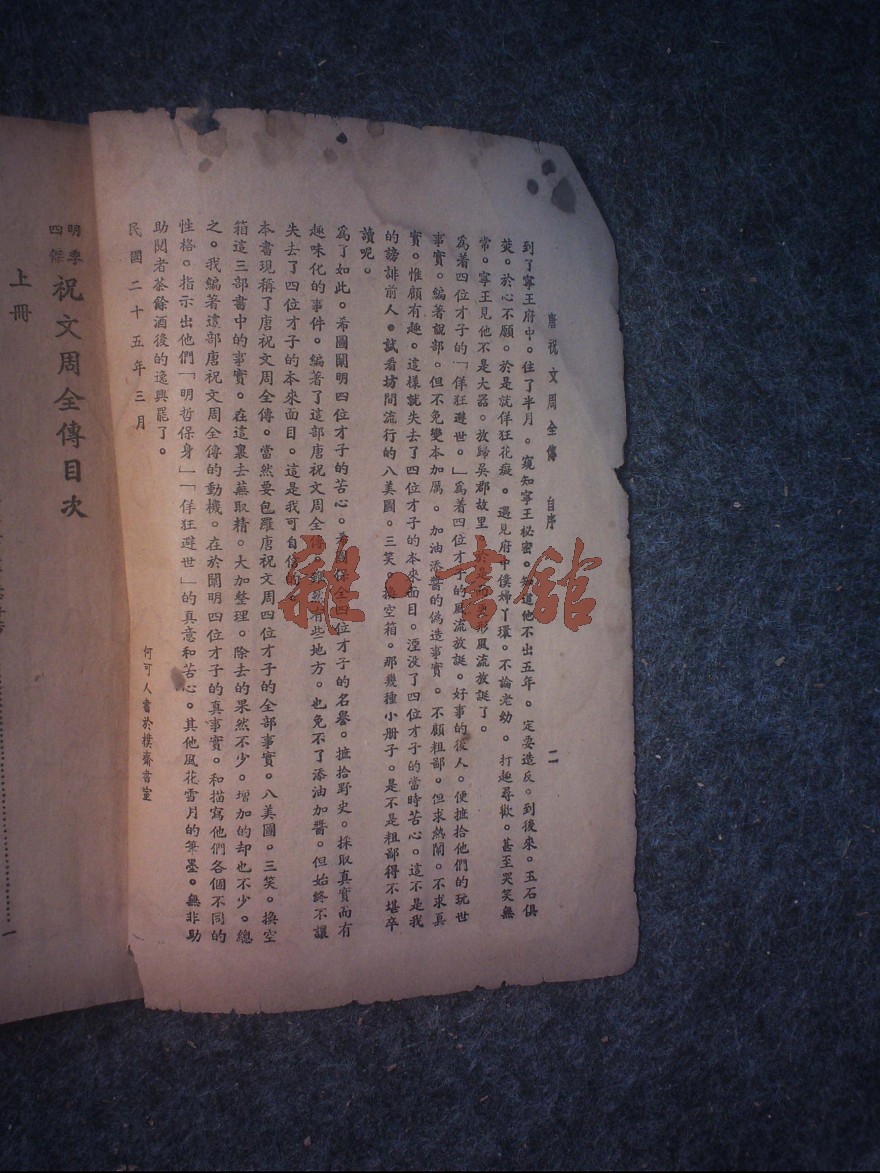 唐祝文周全傳 自序 二
到了寧王府中。住了半月。窺知寧王秘密。知道他不出五年。定要造反。到後來。玉石俱
焚。於心不願。於是就佯狂花癡。遇見府中僕婦丫環。不論老幼。打趣尋歡。甚至哭笑無
常。寧王見他不是大器。放歸吳郡故里。於是而更形風流放誕了。
爲着四位才子的「佯狂避世。」爲着四位才子的風流放誕。好事的後人。便摭拾他們的玩世
事實。編著說部。但不免變本加厲。加油添醬的偽造事實。不顧粗鄙。但求熱鬧。不求真
實。惟顧有趣。這樣就失去了四位才子的本來面目。湮没了四位才子的當時苦心。這不是我
的謗誹前人。試看坊間流行的八美圖。三笑。換空箱。那幾種小册子。是不是粗鄙得不堪卒
讀呢。
爲了如此。希圖闡明四位才子的苦心。希圖保全四位才子的名譽。摭拾野史。採取真實而有
趣味化的事件。編著了這部唐祝文周全傳。雖然有些地方。也免不了添油加醬。但始終不讓
失去了四位才子的本來面目。這是我可自信的。
本書現稱了唐祝文周全傳。當然要包羅唐祝文周四位才子的全部事實。八美圖。三笑。換空
箱這三部書中的事實。在這裏去蕪取精。大加整理。除去的果然不少。增加的却也不少。總
之。我編著這部唐祝文周全傳的動機。在於闡明四位才子的真事實。和描寫他們各個不同的
性格。指示出他們「明哲保身」「佯狂避世」的真意和苦心。其他風花雪月的筆墨。無非助
助閱者茶餘酒後的逸興罷了。
民國二十五年三月
何可人書於樸齋書室
明季四傑 祝文周全傳目次
上冊
一
雜·書館